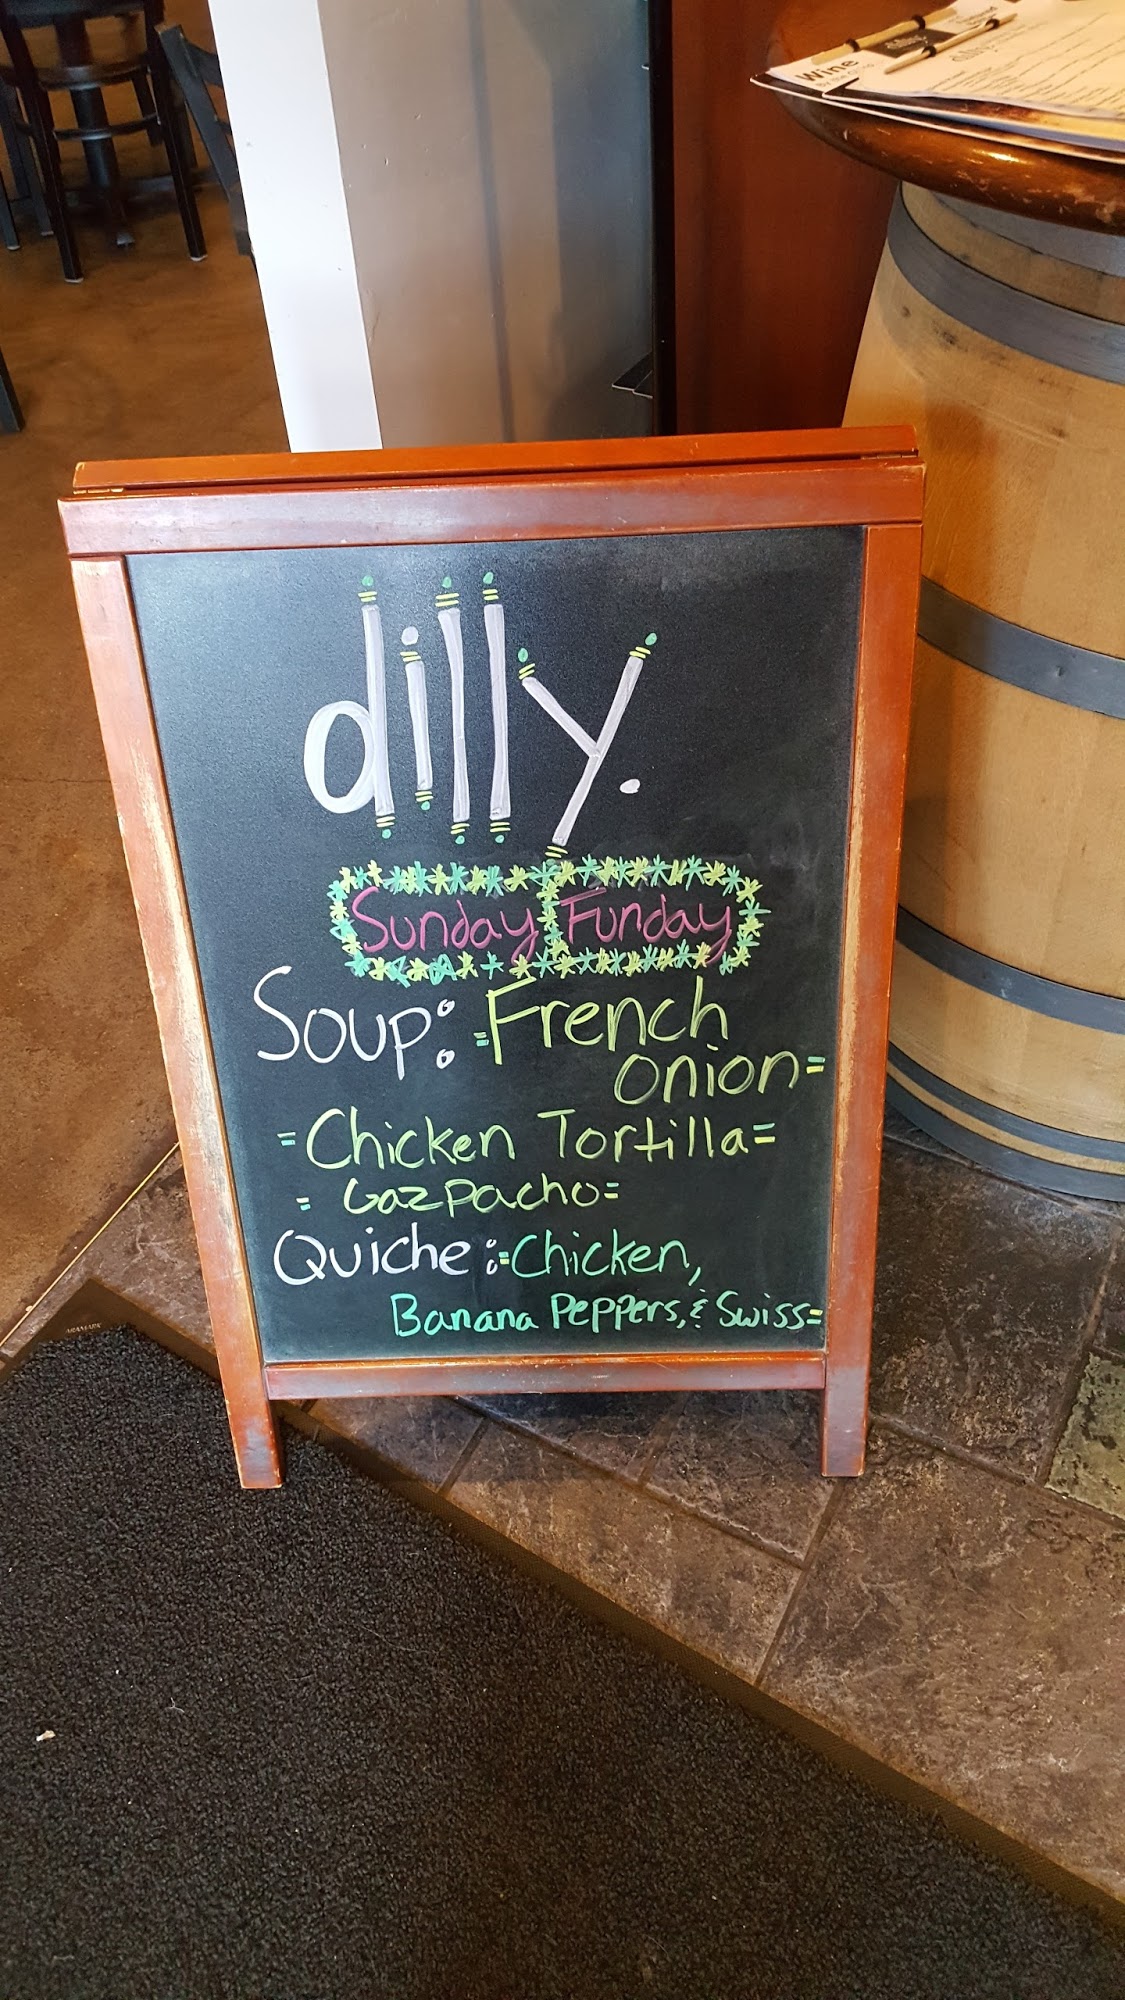 Wine
dilly.
Sunday Funday
Soup: =French
onion=
=Chicken Tortilla=
= Gazpacho=
Quiche: =Chicken,
Banana Peppers, & Swiss=
ARAMARK